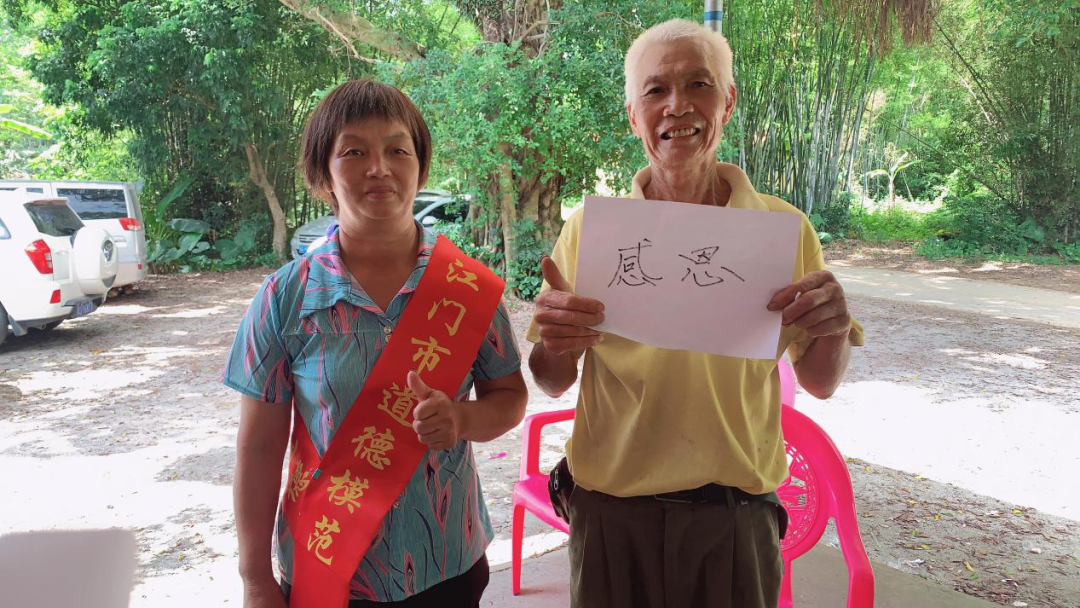 江门市道德模范
感恩